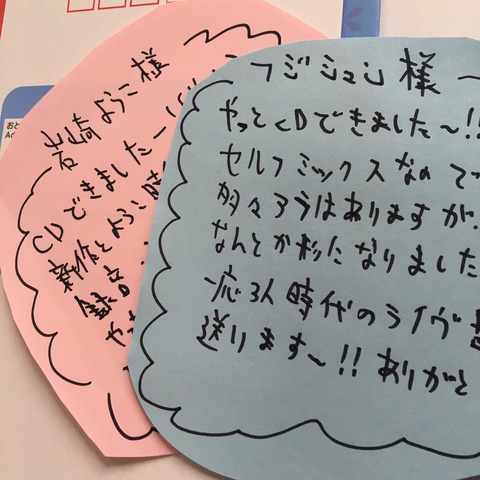 フジシュン様
やっとCDできました〜!!
セルフミックスなので
多々ろうはありますが、
なんとか形になりました
一応3人時代のライヴ
送ります〜!! ありがと
岩崎ようこ様
CDできましたー
新作とようこ時
録音
やっ
おと